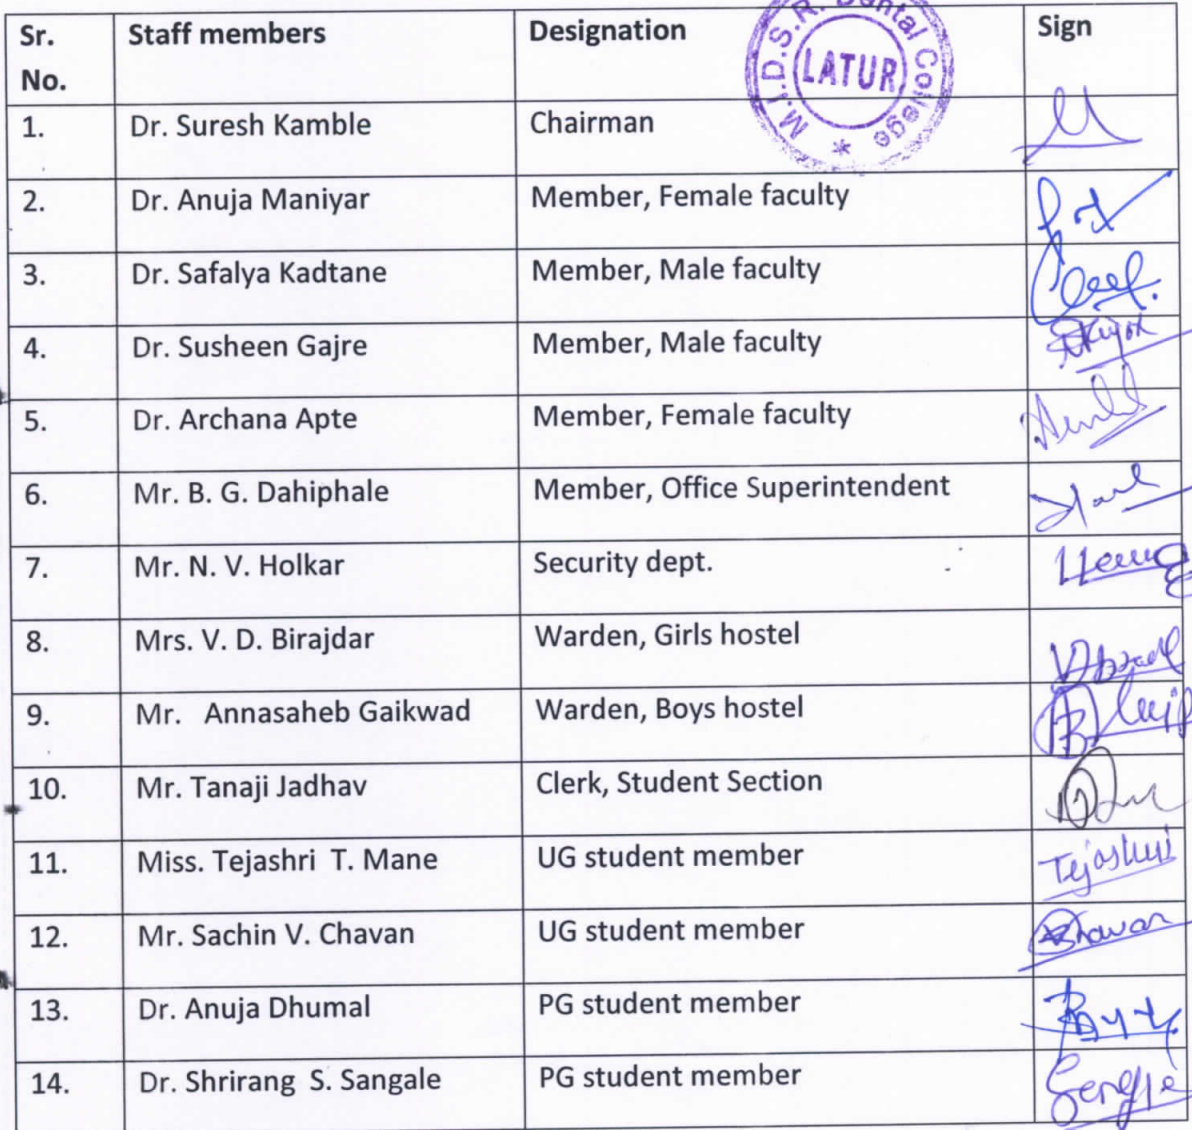 Sr. No. Staff members Designation Sign
M.I.D.S.R. Dental College
LATUR
1. Dr. Suresh Kamble Chairman
2. Dr. Anuja Maniyar Member, Female faculty
3. Dr. Safalya Kadtane Member, Male faculty
4. Dr. Susheen Gajre Member, Male faculty
5. Dr. Archana Apte Member, Female faculty
6. Mr. B. G. Dahiphale Member, Office Superintendent
7. Mr. N. V. Holkar Security dept.
8. Mrs. V. D. Birajdar Warden, Girls hostel
9. Mr. Annasaheb Gaikwad Warden, Boys hostel
10. Mr. Tanaji Jadhav Clerk, Student Section
11. Miss. Tejashri T. Mane UG student member
12. Mr. Sachin V. Chavan UG student member
13. Dr. Anuja Dhumal PG student member
14. Dr. Shrirang S. Sangale PG student member